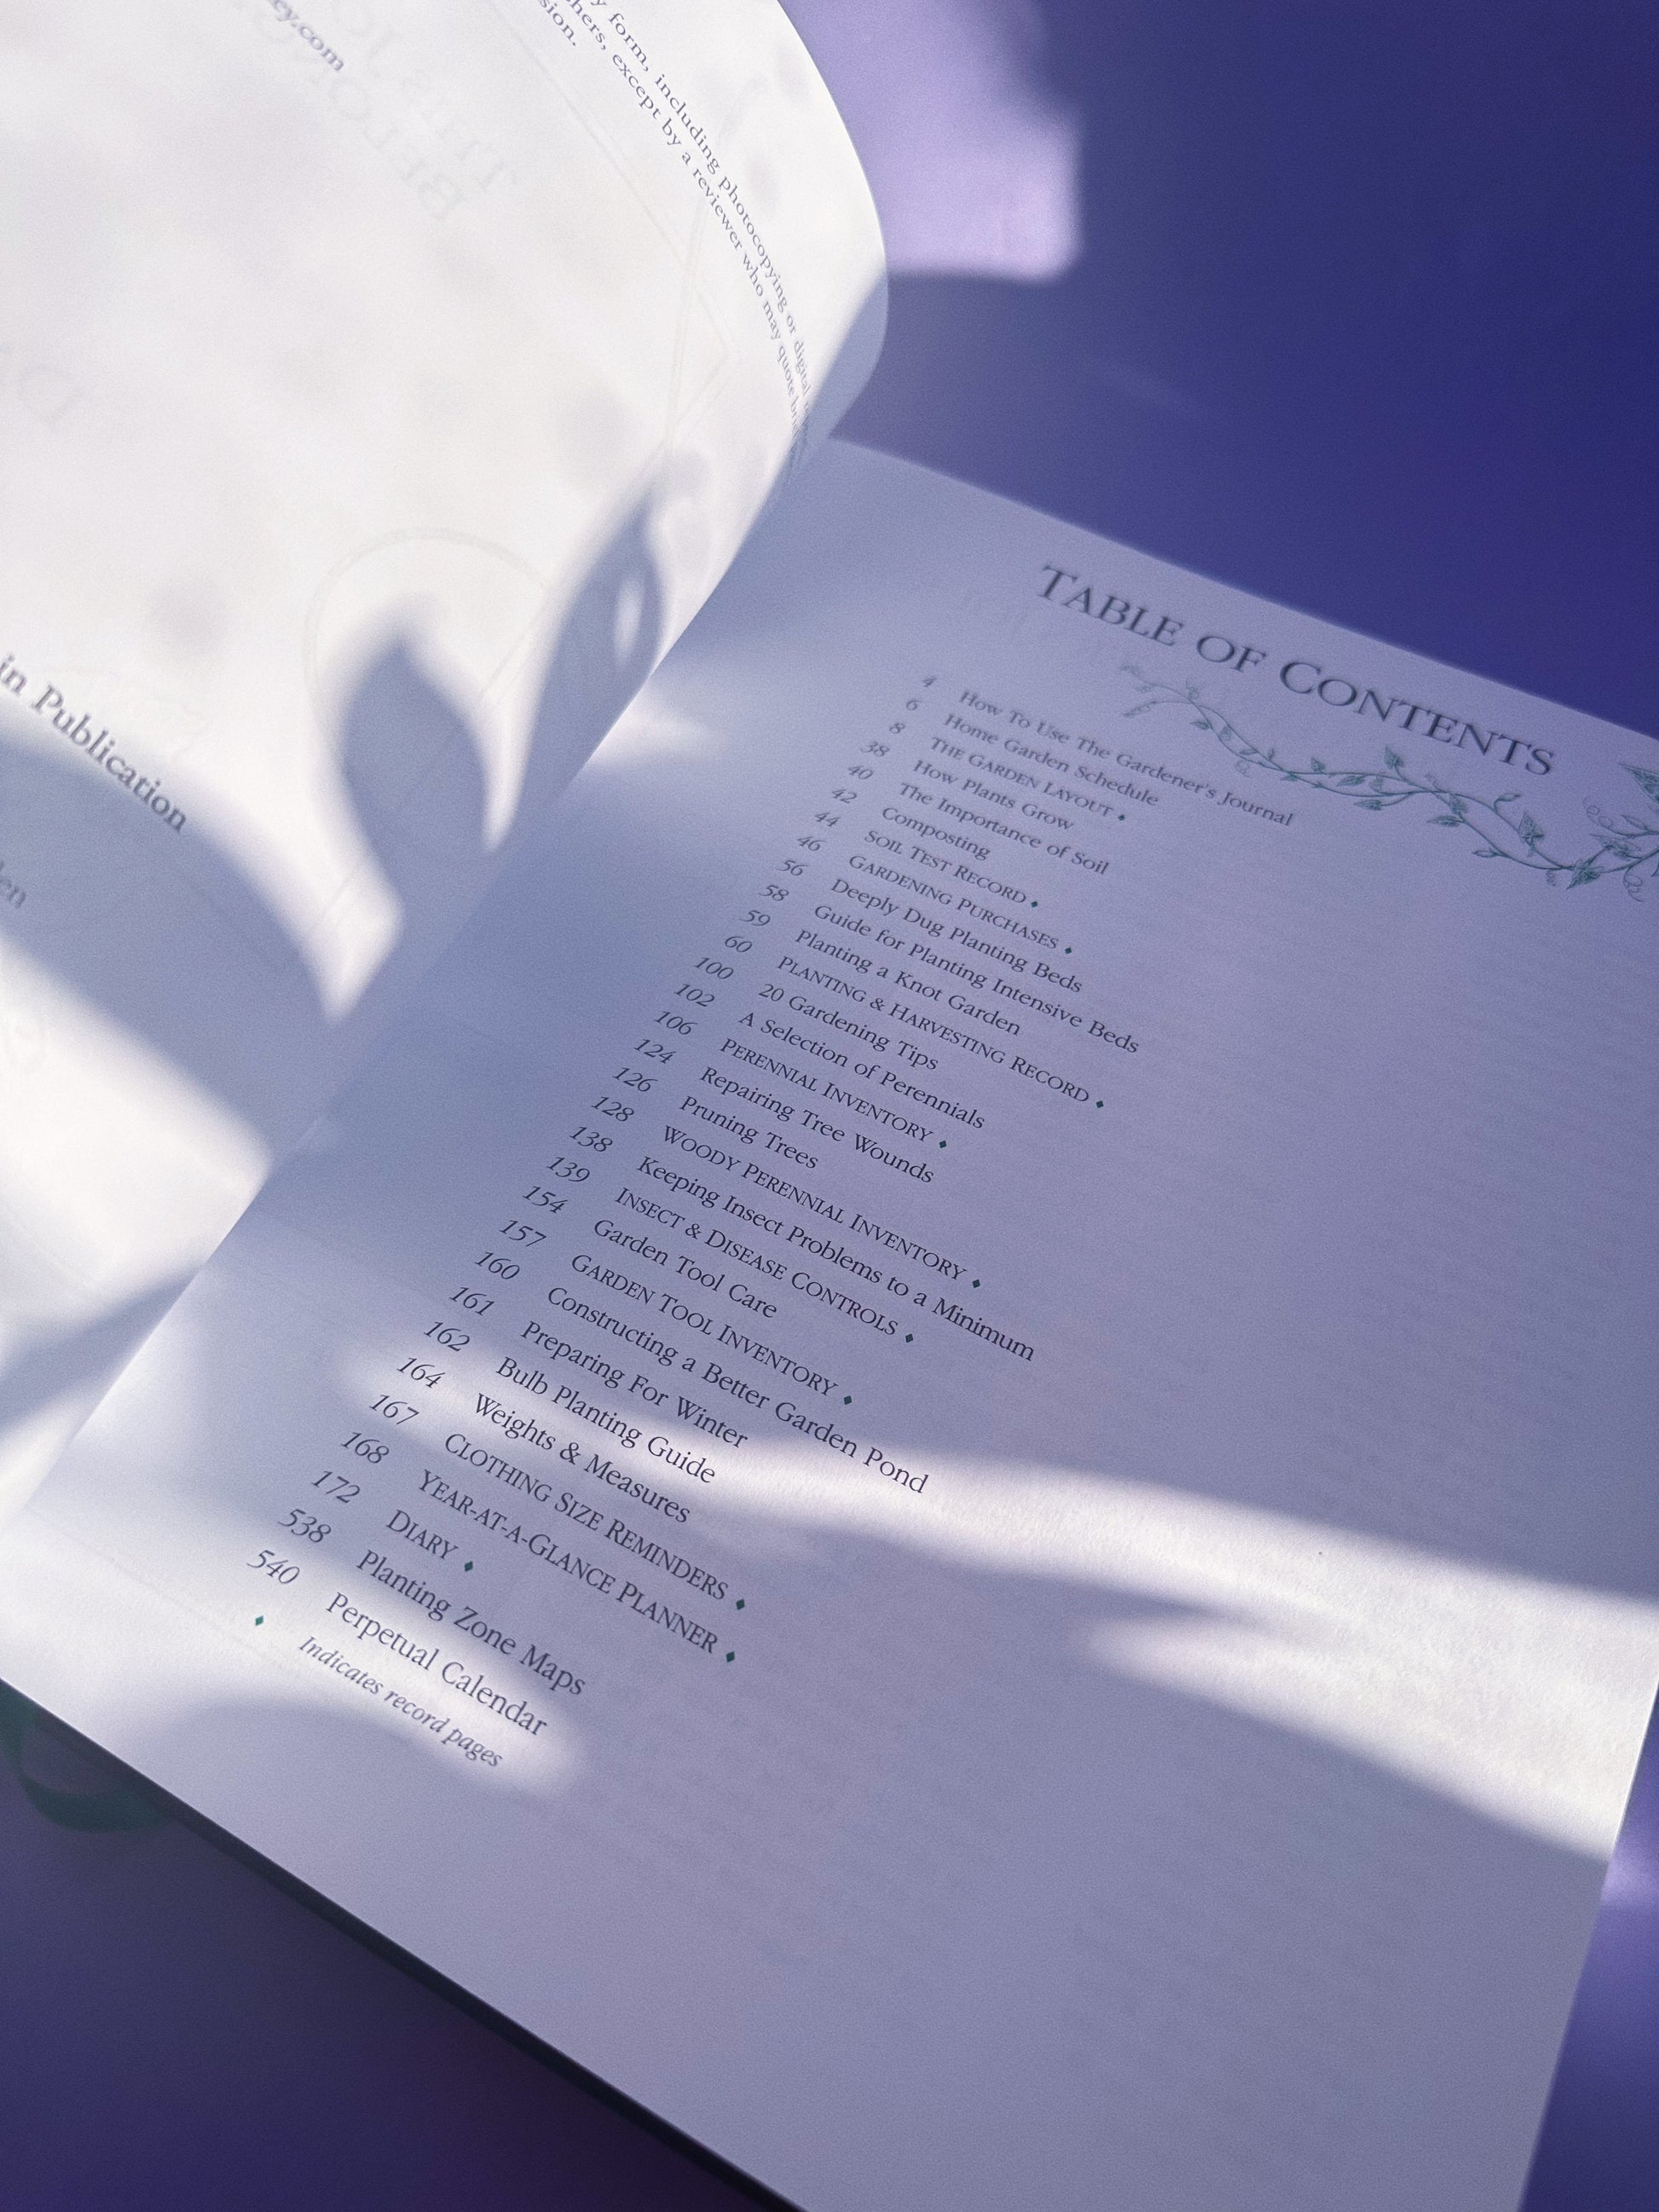 ey.com
y form, including photocopying or digital
hers, except by a reviewer who may quote
sion.
in Publication
TABLE OF CONTENTS
4 How To Use The Gardener's Journal
6 Home Garden Schedule
8 THE GARDEN LAYOUT ♦
38 How Plants Grow
40 The Importance of Soil
42 Composting
44 SOIL TEST RECORD ♦
46 GARDENING PURCHASES ♦
56 Deeply Dug Planting Beds
58 Guide for Planting Intensive Beds
59 Planting a Knot Garden
60 PLANTING & HARVESTING RECORD ♦
100 20 Gardening Tips
102 A Selection of Perennials
106 PERENNIAL INVENTORY ♦
124 Repairing Tree Wounds
126 Pruning Trees
128 WOODY PERENNIAL INVENTORY ♦
138 Keeping Insect Problems to a Minimum
139 INSECT & DISEASE CONTROLS ♦
154 Garden Tool Care
157 GARDEN TOOL INVENTORY ♦
160 Constructing a Better Garden Pond
161 Preparing For Winter
162 Bulb Planting Guide
164 Weights & Measures
167 CLOTHING SIZE REMINDERS ♦
168 YEAR-AT-A-GLANCE PLANNER ♦
172 DIARY ♦
538 Planting Zone Maps
540 Perpetual Calendar
♦ Indicates record pages